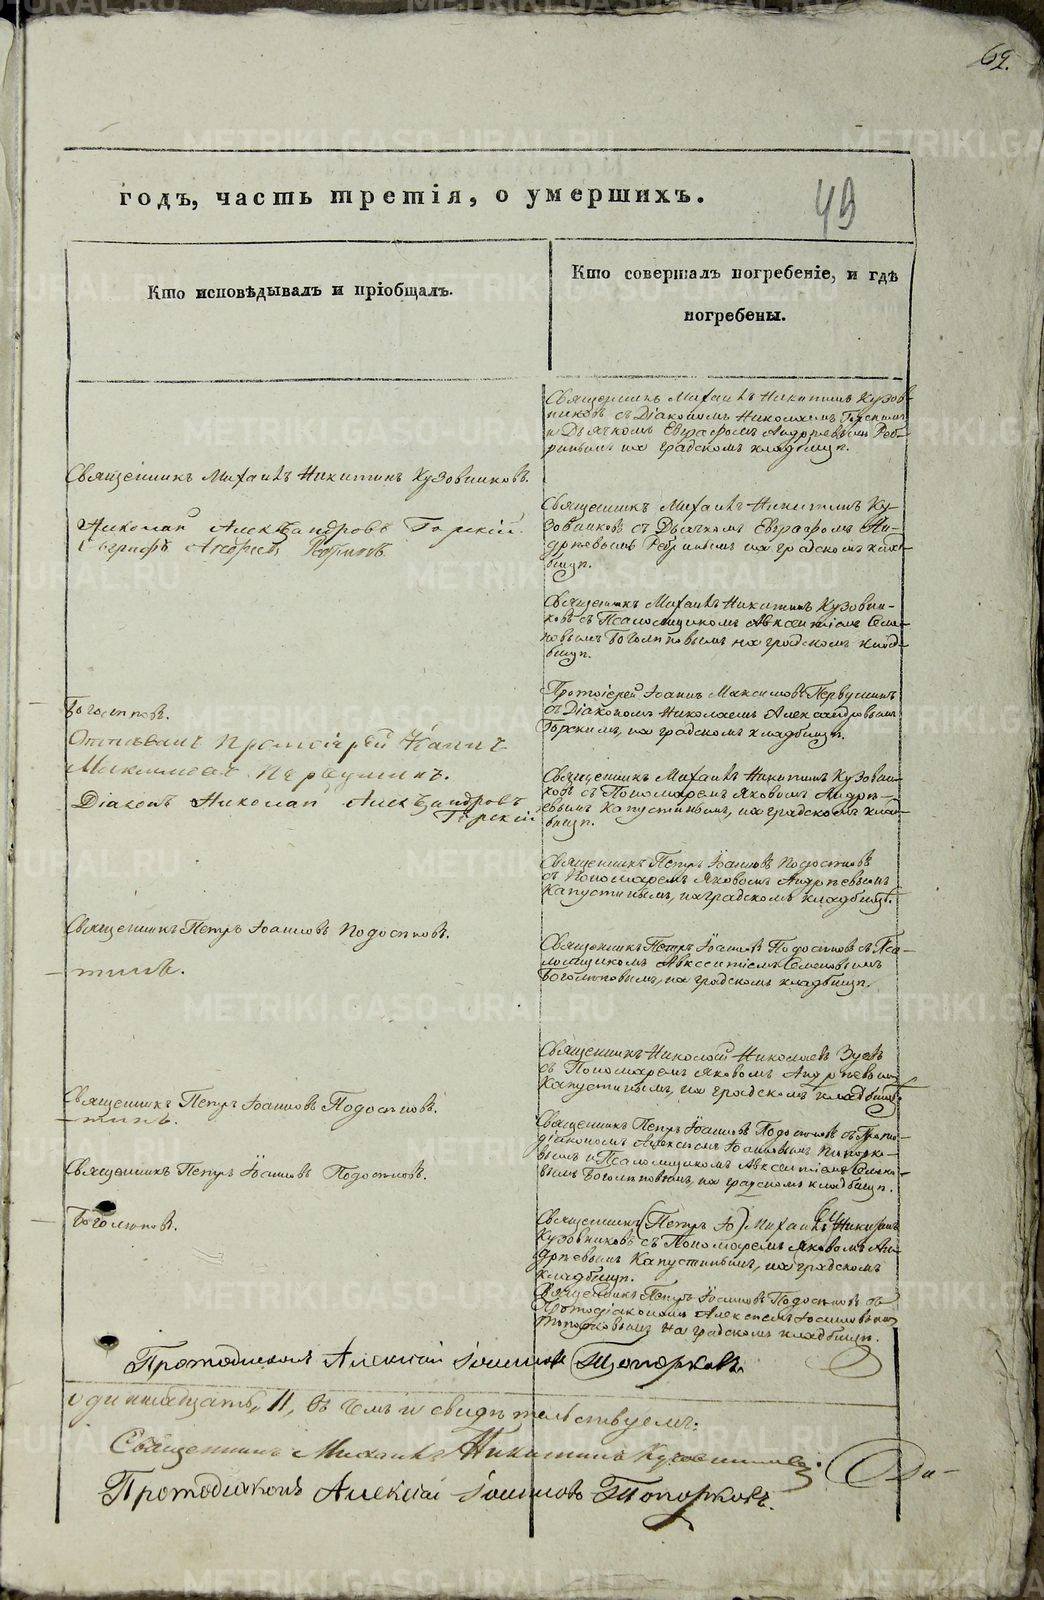 62.
годъ, часть третія, о умершихъ.
49
Кто исповѣдывалъ и пріобщалъ.
Кто совершалъ погребеніе, и гдѣ
погребены.
Священникъ Михаилъ Никитинъ Кузов-
никовъ съ Діакономъ Николаемъ Горскимъ
и Дьячкомъ Евграфомъ Андреевымъ Реб-
ринымъ на градскомъ кладбищѣ.
Священникъ Михаилъ Никитинъ Кузовниковъ.
Николай Александровъ Горскій.
Евграфъ Андреевъ
Священникъ Михаилъ Никитинъ Ку-
зовниковъ съ Дьячкомъ Евграфомъ Ан-
дреевымъ Ребринымъ на градскомъ клад-
бищѣ.
Священникъ Михаилъ Никитинъ Кузовни-
ковъ съ Псаломщикомъ Авксентіемъ Семе-
новымъ Боголеповымъ на градскомъ клад-
бищѣ.
Боголеповъ.
Отпѣвалъ Протоіерей Іоаннъ
Максимовъ Первушинъ.
Діаконъ Николай Александровъ
Горскій
Протоіерей Іоаннъ Максимовъ Первушинъ
съ Діакономъ Николаемъ Александровымъ
Горскимъ, на градскомъ кладбищѣ.
Священникъ Михаилъ Никитинъ Кузовни-
ковъ съ Пономаремъ Яковомъ Андре-
евымъ Капустинымъ, на градскомъ клад-
бищѣ.
Священникъ Петръ Іоанновъ Подосеновъ
съ Пономаремъ Яковомъ Андреевымъ
Капустинымъ, на градскомъ кладбищѣ.
Священникъ Петръ Іоанновъ Подосеновъ.
Священникъ Петръ Іоанновъ Подосеновъ съ Пса-
ломщикомъ Авксентіемъ Семеновымъ
Боголеповымъ, на градскомъ кладбищѣ.
Священникъ Николай Николаевъ Зуевъ
съ Пономаремъ Яковомъ Андреевымъ
Капустинымъ, на градскомъ кладбищѣ.
Священникъ Петръ Іоанновъ Подосеновъ.
Священникъ Петръ Іоанновъ Подосеновъ съ Прото-
діакономъ Алексіемъ Іоанновымъ Топорко-
вымъ и Псаломщикомъ Авксентіемъ Семено-
вымъ Боголеповымъ, на градскомъ кладбищѣ.
Священникъ Петръ Іоанновъ Подосеновъ.
Боголеповъ.
Священникъ (Петръ Іо) Михаилъ Никитинъ
Кузовниковъ съ Пономаремъ Яковомъ Ан-
дреевымъ Капустинымъ, на градскомъ
кладбищѣ.
Священникъ Петръ Іоанновъ Подосеновъ съ
Протодіакономъ Алексіемъ Іоанновымъ
Топорковымъ на градскомъ кладбищѣ.
Протодіаконъ Алексій Іоанновъ Топорковъ.
одиннадцать, 11, въ чемъ и свидѣтельствуемъ:
Священникъ Михаилъ Никитинъ Кузовниковъ.
Протодіаконъ Алексій Іоанновъ Топорковъ.
METRIKI.GASO-URAL.RU